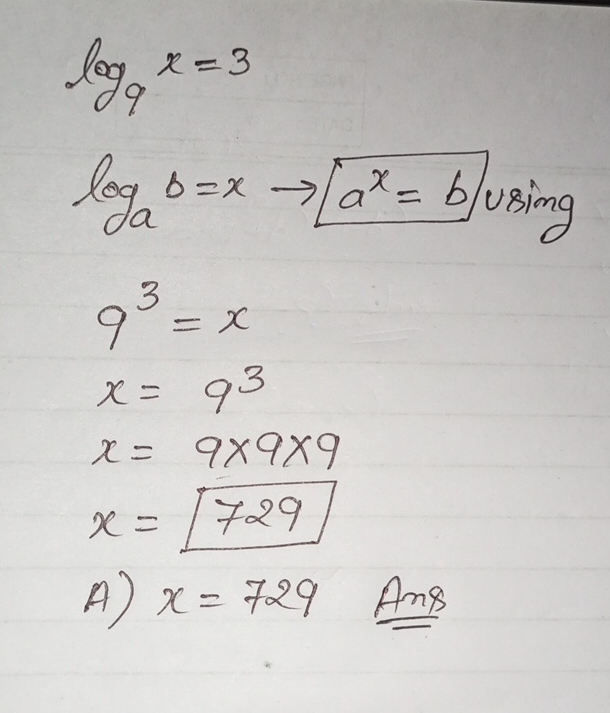 log₉ x = 3
logₐ b = x → aˣ = b using
9³ = x
x = 9³
x = 9×9×9
x = 729
A) x = 729 Ans